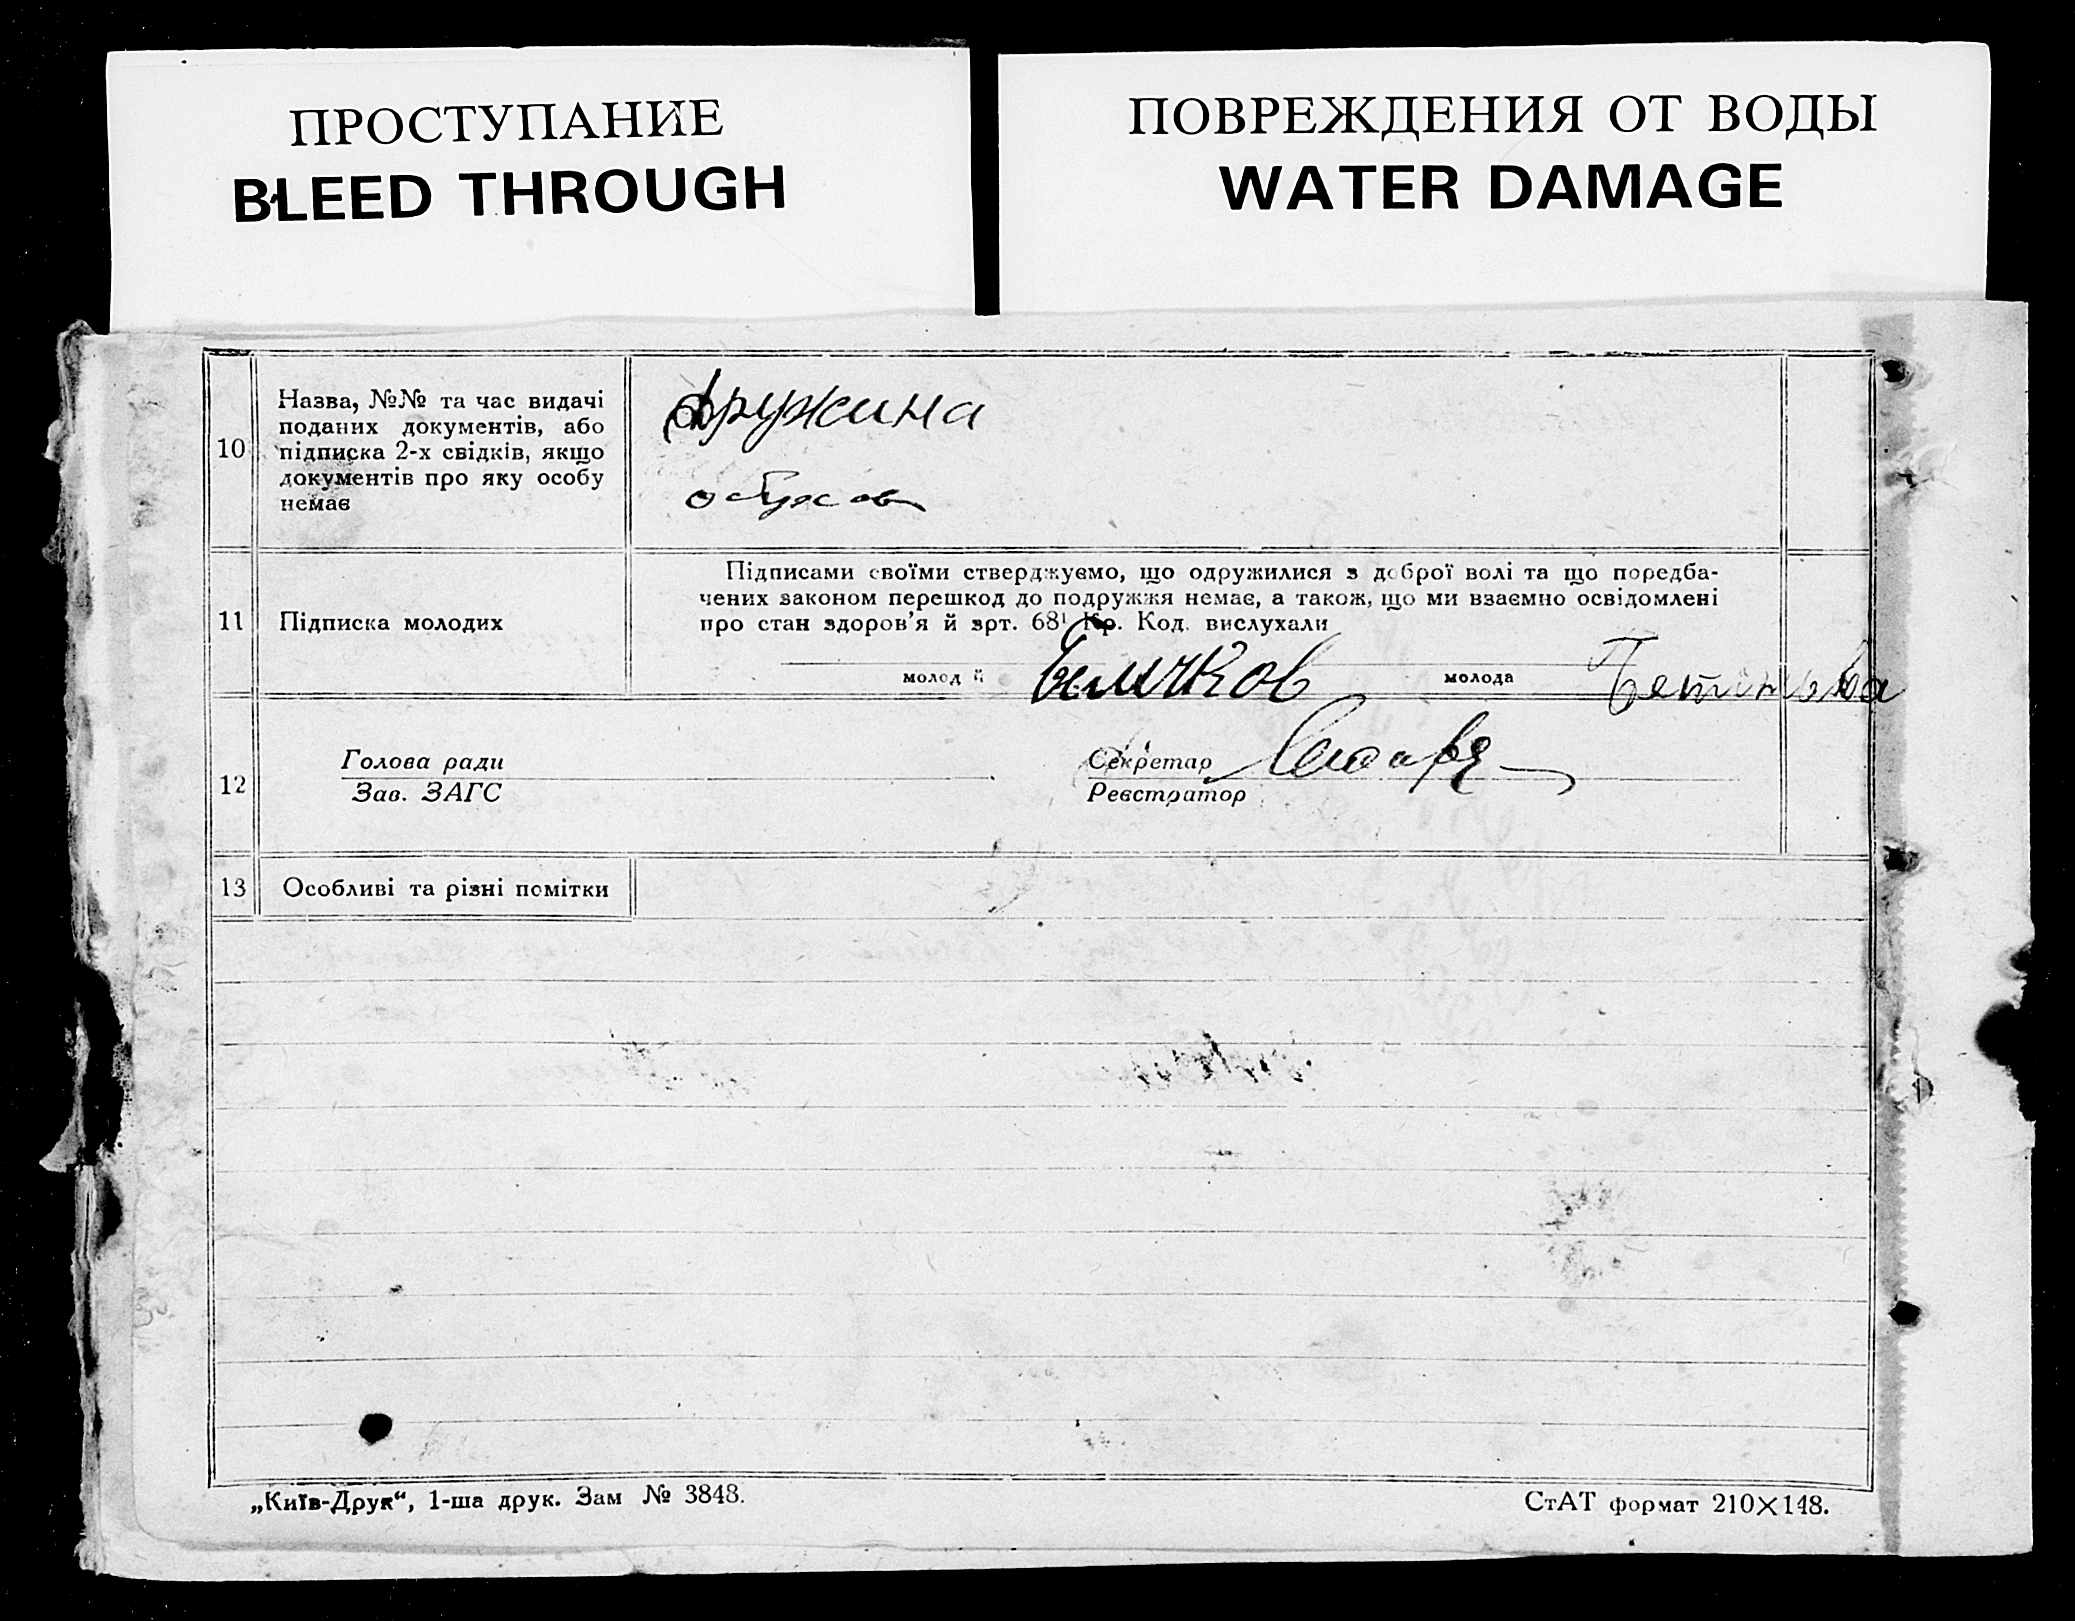 ПРОСТУПАНИЕ
BLEED THROUGH
ПОВРЕЖДЕНИЯ ОТ ВОДЫ
WATER DAMAGE
10
Назва, №№ та час видачі
поданих документів, або
підписка 2-х свідків, якщо
документів про яку особу
немає
дружина
11
Підписка молодих
Підписами своїми стверджуємо, що одружилися з доброї волі та що поредба-
чених законом перешкод до подружжя немає, а також, що ми взаємно освідомлені
про стан здоров'я й арт. 68¹ Кр. Код. вислухали
молодй
молода
12
Голова ради
Зав. ЗАГС
Секретар
Реєстратор
13
Особливі та різні помітки
„Київ-Друк“, 1-ша друк. Зам № 3848.
СтАТ формат 210×148.